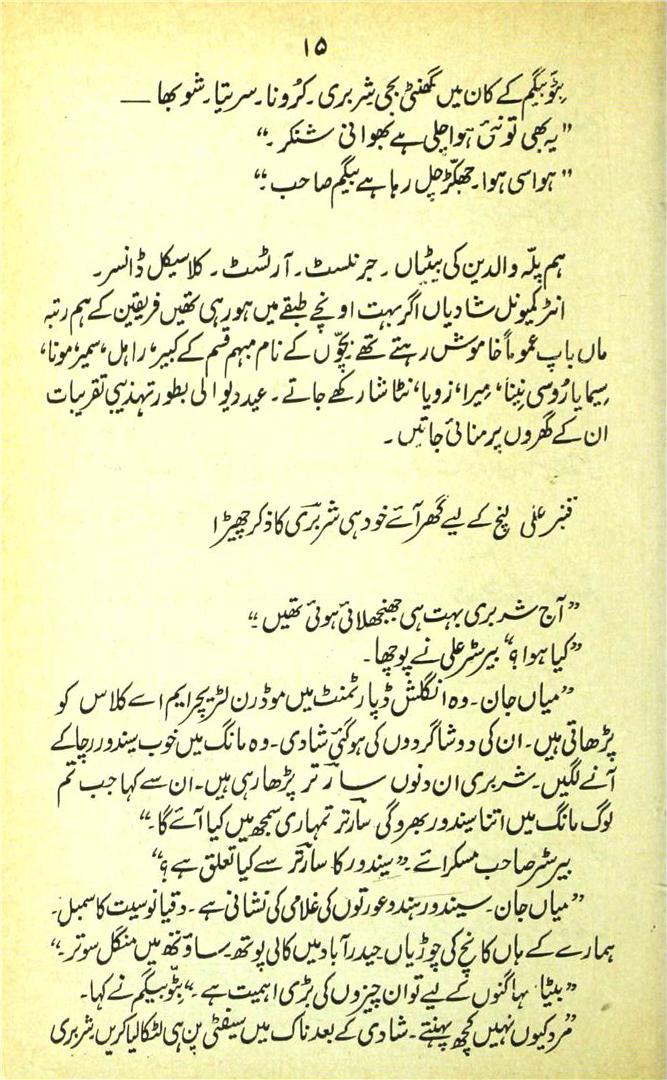 ۱۵
بٹو بیگم کے کان میں گھنٹی بجی شربری۔ کرونا۔ سریتا۔ شوبھا —
"یہ بھی تو نئی ہوا چلی ہے بھوانی شنکر۔"
"ہوا سی ہوا۔ جھکڑ چل رہا ہے بیگم صاحب۔"
ہم پلّہ والدین کی بیٹیاں۔ جرنلسٹ۔ آرٹسٹ۔ کلاسیکل ڈانسر۔
انٹر کمیونل شادیاں اگر بہت اونچے طبقے میں ہو رہی تھیں فریقین کے ہم رتبہ
ماں باپ عموماً خاموش رہتے تھے بچّوں کے نام مبہم قسم کے کبیر، راہل، سمیر، مونا،
سیما یا رُوسی نینا، میرا، زویا، نتاشا رکھے جاتے۔ عید دیوالی بطور تہذیبی تقریبات
ان کے گھروں پر منائی جاتیں۔
قنبر علی لنچ کے لیے گھر آئے خود ہی شربری کا ذکر چھیڑا
"آج شربری بہت ہی جھنجھلائی ہوئی تھیں۔"
"کیا ہوا؟" بیرسٹر علی نے پوچھا۔
"میاں جان۔ وہ انگلش ڈپارٹمنٹ میں موڈرن لٹریچر ایم اے کلاس کو
پڑھاتی ہیں۔ ان کی دو شاگردوں کی ہو گئی شادی۔ وہ مانگ میں خوب سیندور رچا کے
آنے لگیں۔ شربری ان دنوں سارتر پڑھا رہی ہیں۔ ان سے کہا جب تم
لوگ مانگ میں اتنا سیندور بھرو گی سارتر تمہاری سمجھ میں کیا آئے گا۔"
بیرسٹر صاحب مسکرائے۔ "سیندور کا سارتر سے کیا تعلق ہے؟"
"میاں جان۔ سیندور ہندو عورتوں کی غلامی کی نشانی ہے۔ دقیانوسیت کا سمبل۔
ہمارے کے ہاں کانچ کی چوڑیاں حیدرآباد میں کالی پوتھ۔ ساؤتھ میں منگل سوتر۔"
"بیٹا سہاگنوں کے لیے تو ان چیزوں کی بڑی اہمیت ہے۔" بٹّو بیگم نے کہا۔
"مرد کیوں نہیں کچھ پہنتے۔ شادی کے بعد ناک میں سیفٹی پن ہی لٹکا لیا کریں۔ شربری